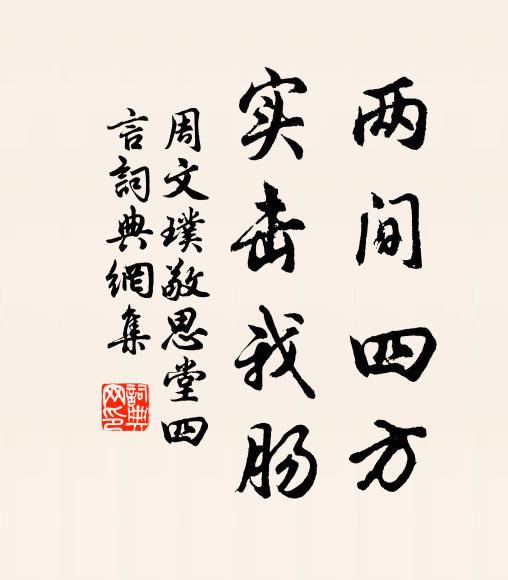 两间四方
实击我肠
周文璞敬思堂四
言詞典網集
詞典
网印